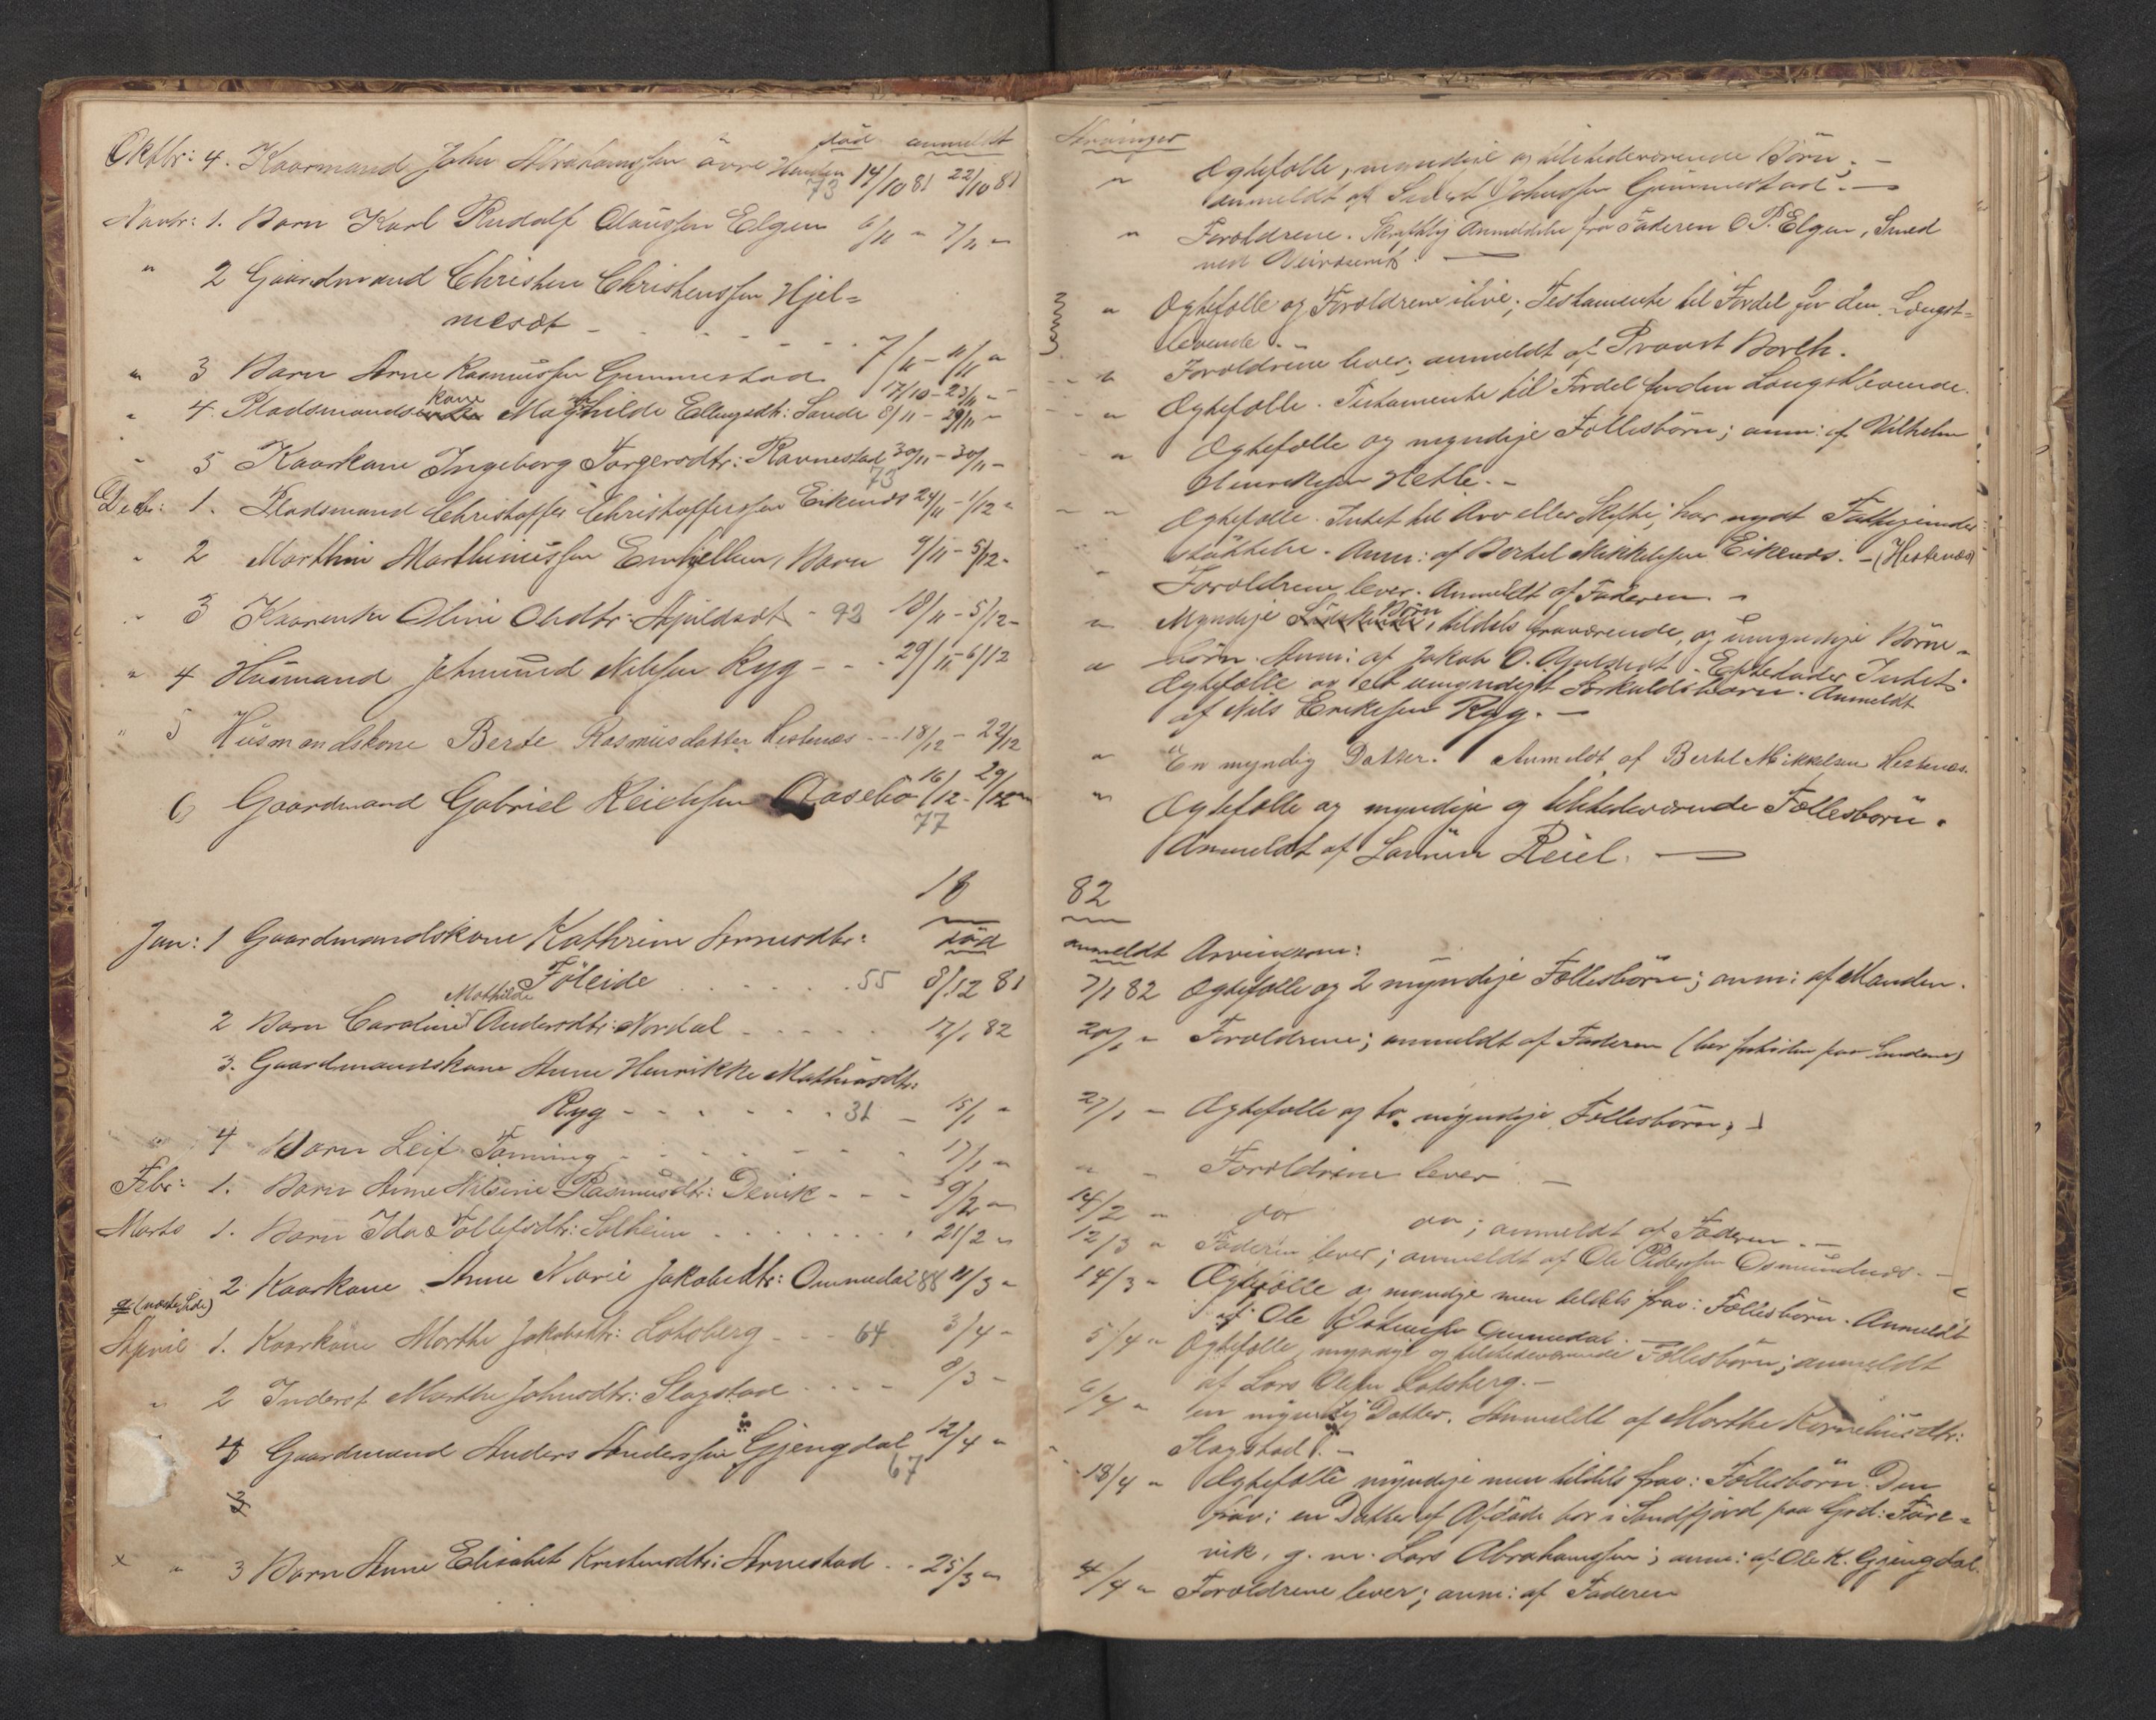 död anmeldt
Oktbr: 4. Kaarmand John Abrahamssen övre Hunden 73 14/10 81 22/10 81
Novbr: 1. Barn Karl Rudolf Olaussen Elgen 6/11 " 7/11 "
" 2 Gaardmand Christen Christenssen Hjel=
mesæt - 7/11 - 11/11 "
" 3 Barn Arne Rasmussen Gimmestad 17/10 - 23/11 -
kone
" 4. Pladsmands Maghilde Ellingsdtr: Sande 8/11 - 29/11 -
" 5 Kaarkone Ingeborg Torgersdtr: Ravnestad 30/11 - 30/11 -
73
Decbr: 1. Pladsmand Christoffer Christofferssen Eikenæs 24/11 - 1/12 "
" 2 Marthin Marthinussen Emhjellen, Barn 9/11 - 5/12 -
" 3 Kaarenke Oline Olsdtr: Apildsæt - 92 18/11 - 5/12 -
" 4 Husmand Jetmund Nilssen Ryg - - . 29/11 - 6/12
" 5 Husmandskone Berte Rasmusdatter Hestenæs - - 18/12 - 22/12
6 Gaardmand Gabriel Reielssen Aasebö 16/12 - 29/12 "
77
18
Jan: 1 Gaardmandskone Kathrine Arnesdtr: död
Föleide . . . . . . . 55 8/12 81
Mathilde
2 Barn Caroline Andersdtr: Nordal - - - - . 12/1 82
3. Gaardmandskone Anne Henrikke Mathiasdtr:
Ryg - - - - - - . 31 - 15/1 "
" 4 Barn Leif Tanning - - - - - - . 17/1 "
Febr: 1. Barn Anne Nilsine Rasmusdtr: Devik - - - 9/2 "
Marts 1. Barn Ida Tollefsdtr: Solheim . . . . . . . 21/2 "
2 Kaarkone Anne Marie Jakobsdtr: Ommedal 88 11/3 "
(næste Side)
April 1. Kaarkone Marthe Jakobsdtr: Lotsberg - - - 64 3/4 -
" 2 Inderst Marthe Johnsdtr: Slagstad . - - - 9/3 -
4 Gaardmand Anders Anderssen Gjengdal 12/4 "
67
3
x " 3 Barn Anne Elisabet Kristensdtr: Arnestad . . 25/3 "
Arvinger
" Ægtefælle, myndige og tilstedeværende Börn. -
anmeldt af Sivert Johnssen Gimmestad. -
" Forældrene. Skriftlig Anmeldelse fra Faderen O P. Elgen, Smed
ved -
" Ægtefælle og Forældrene ilive; Testamente til Fordel for den Længst=
levende. -
" Forældrene lever; anmeldt af Provst Borch.
" Ægtefælle. Testamente til Fordel for den Længstlevende.
" Ægtefælle og myndige Fællesbörn; anm: af Vilhelm
Henrikssen Hetle. -
" Ægtefælle. Intet til Arv eller Skifte; har nydt Fattigunder=
støttelse. Anm: af Bertel Mikkelssen Eikenæs. - (Hestenæs)
Forældrene lever. Anmeldt af Faderen -
Börn
" Myndige , tildels fraværende, og umyndige Börne=
börn. Anm: af Jakob O. Apildsæt. Efterlader Intet.
" Ægtefælle og et umyndigt Forkuldsbarn. Anmeldt
af Nils Erikssen Ryg. -
" En myndig Datter. Anmeldt af Bertel Mikkelsen Hestenæs.
" Ægtefælle og myndige og tilstedeværende Fællesbörn.
Anmeldt af Reiel. -
82
anmeldt Arvingerne:
7/1 82 Ægtefælle og 2 myndige Fællesbörn; anm: af Manden.
20/1 " Forældrene; anmeldt af Faderen
27/1 - Ægtefælle og to myndige Fællesbörn; -
" - Forældrene lever -
14/2 " do do; anmeldt af Faderen. -
12/3 " Faderen lever; anmeldt af Ole Pederssen Osmundnæs. -
14/3 " Ægtefælle og myndige men tildels frav: Fællesbörn. Anmeldt
af Ole Ommedal. -
5/4 " Ægtefælle, myndige og tilstedeværende Fællesbörn; anmeldt
af Lars Olsen Lotsberg. -
6/4 " En myndig Datter. Anmeldt af Marthe Korneliusdtr:
Slagstad. -
18/4 " Ægtefælle myndige men tildels frav: Fællesbörn. Den
frav: en Datter af Afdöde bor i Söndfjord paa Grd: Före=
vik, g. m. Lars Abrahamssen; anm: af Ole K. Gjengdal.
4/4 " Forældrene lever; anm: af Faderen